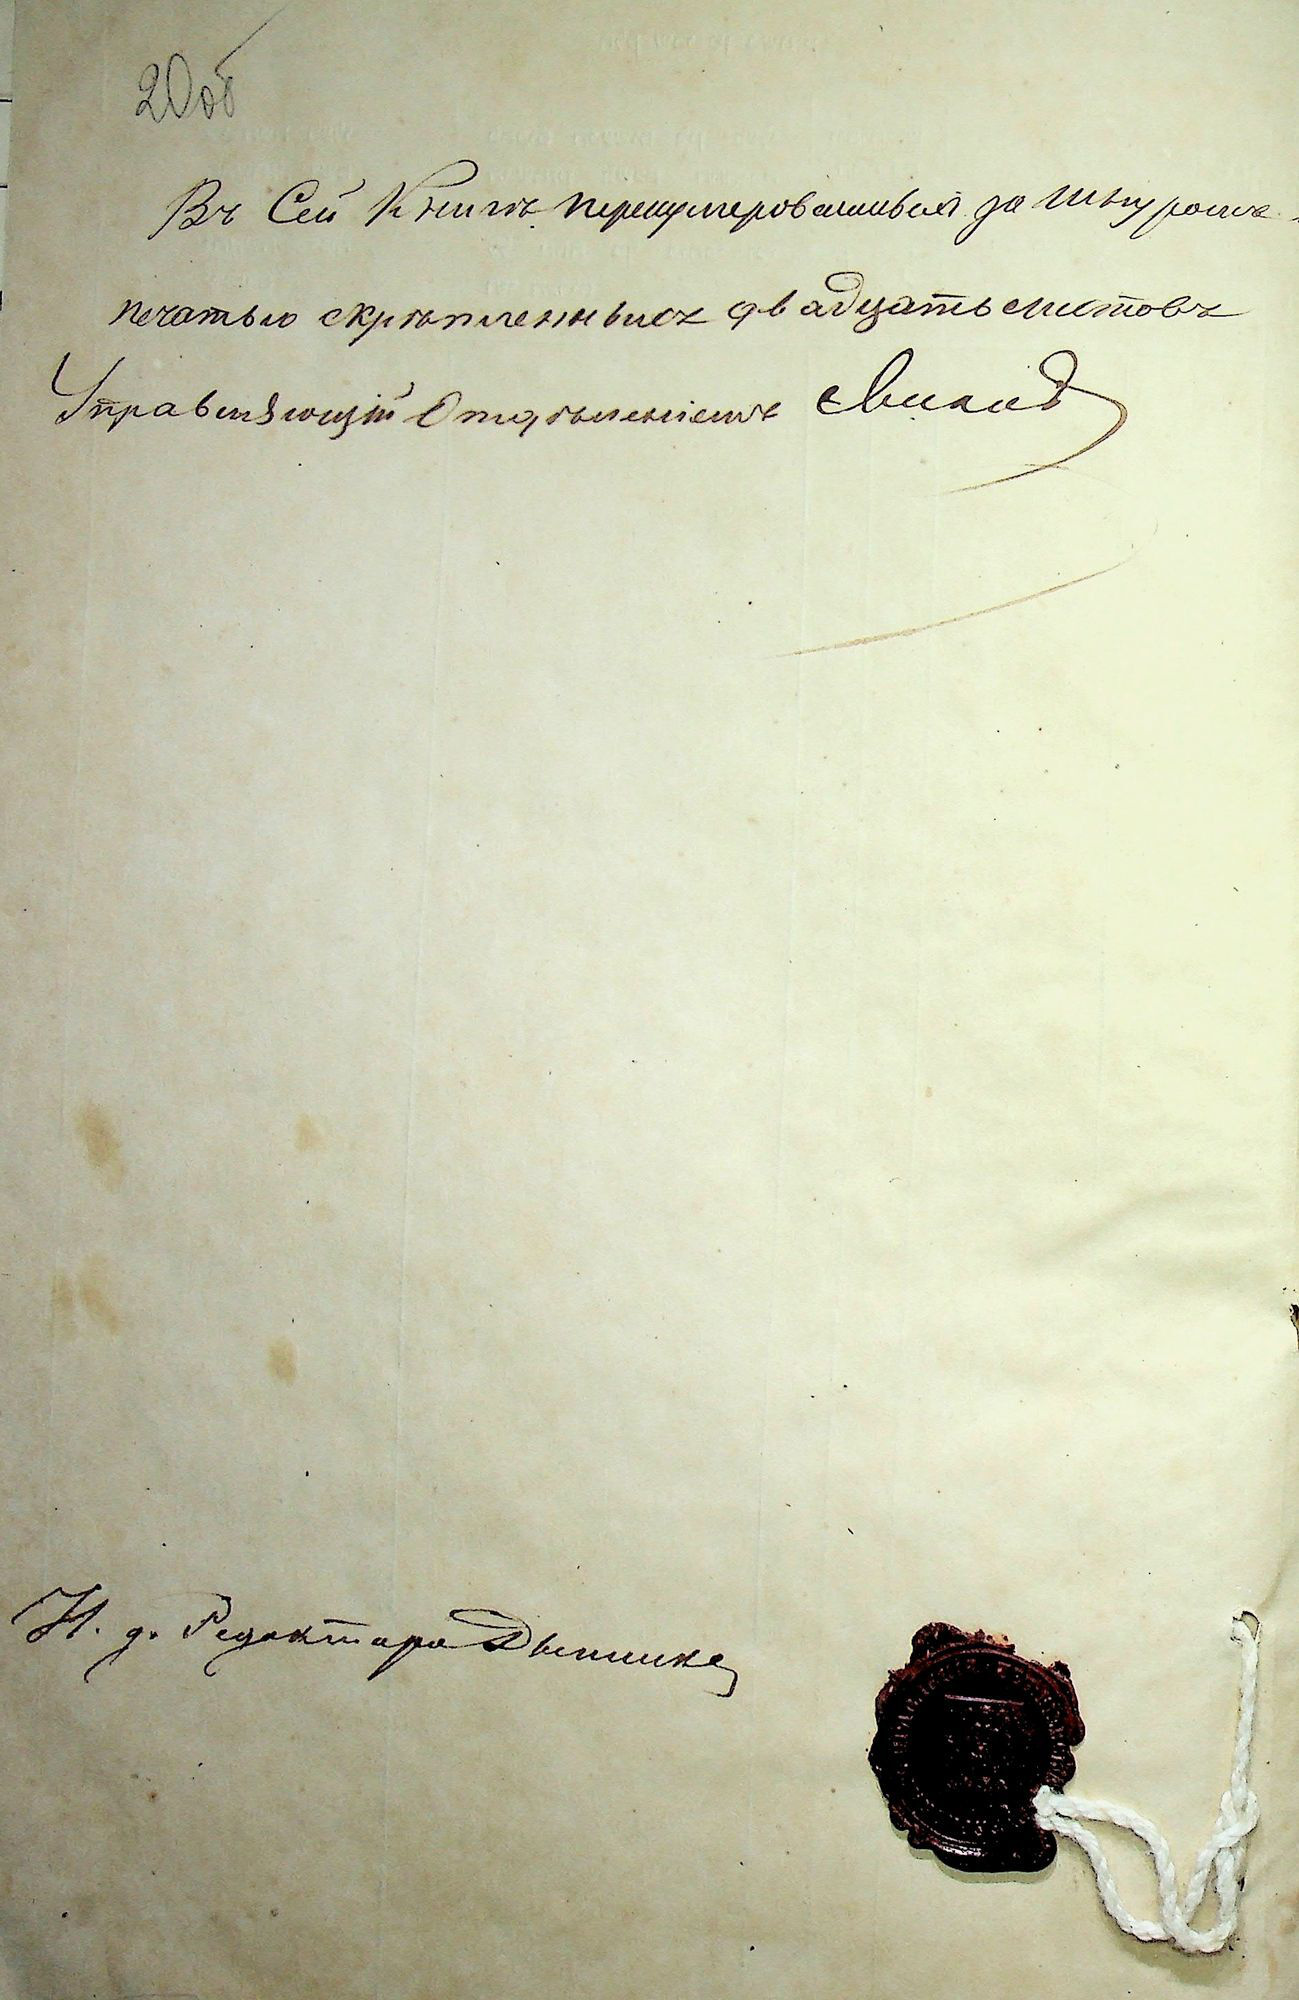 20 об
Въ Сей Книгѣ перенумерованныхъ за шнуромъ
печатью скрѣпленныхъ двадцать листовъ
Управляющій Отдѣленіемъ
И. д. Редактора